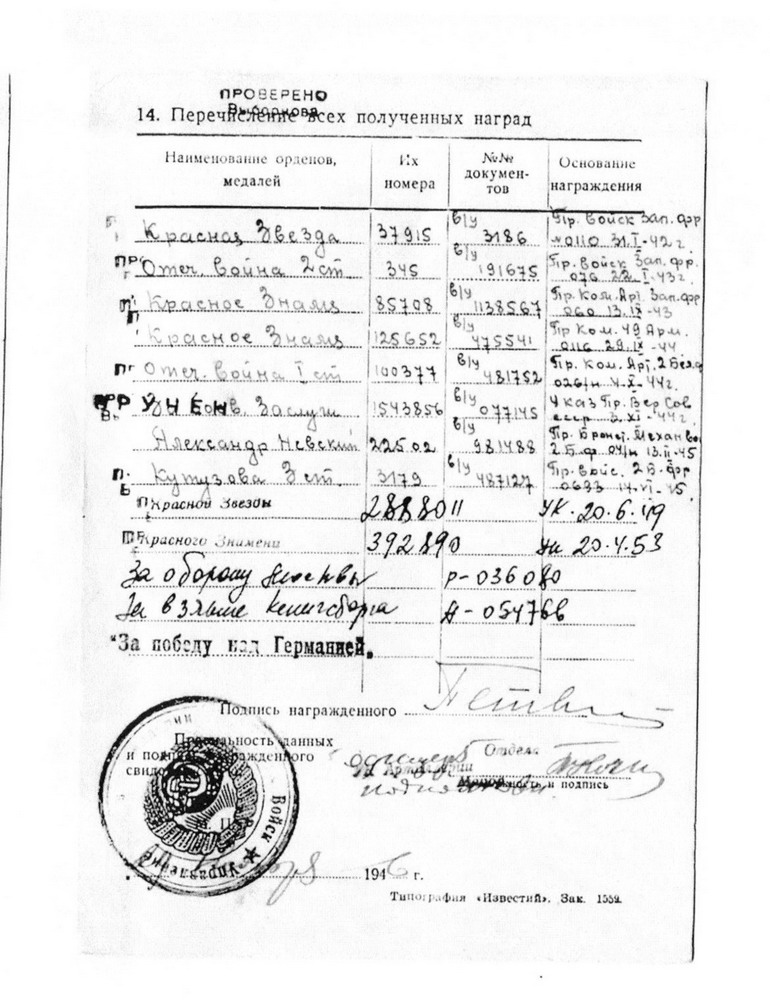 ПРОВЕРЕНО
14. Перечисление всех полученных наград
Наименование орденов, медалей
Их номера
№№ документов
Основание награждения
Красная Звезда 37915 в/у 3186 Пр. Войск Зап. фр №0110 31.I-42г.
Отеч. Война 2 ст 345 в/у 191675 Пр. Войск Зап. фр. 076 22.I-43г.
Красное Знамя 85708 в/у 1138567 Пр. Ком. Арт. Зап. фр 060 13.IX-43
Красное Знамя 125652 в/у 475541 Пр Ком. 49 Арм. 0116 29.IX-44
Отеч. Война I ст 100377 в/у 481752 Пр. Ком. Арт. 2 Бел.ф 026/н 4.X-44г.
За Боев. Заслуги 1543856 в/у 077145 Указ Пр. Вер Сов ссср 3.XI-44г.
Александр Невский 22502 в/у 981488 Пр. Бронет. Механ 2 Б.ф. 04/н 13.II-45
Кутузова 3 ст. 3179 в/у 487127 Пр. Войс. 2 Б. фр 0633 14.VI-45.
Красной Звезды 2888011 УК. 20.6.49
Красного Знамени 392890 Ук 20.4.53
За оборону Москвы р-036080
За взятие Кенигсберга А-054766
"За победу над Германией"
Подпись награжденного
Правильность данных
и подпись награжденного
свид
Отдела
подпись
Войск ★ Управление
194 6 г.
Типография «Известий». Зак. 1559.